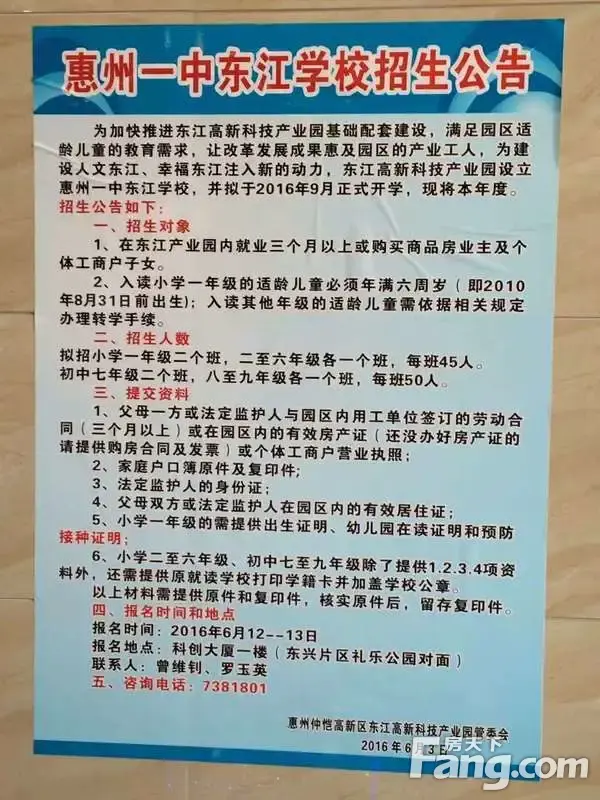 惠州一中东江学校招生公告
为加快推进东江高新科技产业园基础配套建设，满足园区适
龄儿童的教育需求，让改革发展成果惠及园区的产业工人，为建
设人文东江、幸福东江注入新的动力，东江高新科技产业园设立
惠州一中东江学校，并拟于2016年9月正式开学，现将本年度。
招生公告如下：
一、招生对象
1、在东江产业园内就业三个月以上或购买商品房业主及个
体工商户子女。
2、入读小学一年级的适龄儿童必须年满六周岁（即2010
年8月31日前出生）；入读其他年级的适龄儿童需依据相关规定
办理转学手续。
二、招生人数
拟招小学一年级二个班，二至六年级各一个班，每班45人。
初中七年级二个班，八至九年级各一个班，每班50人。
三、提交资料
1、父母一方或法定监护人与园区内用工单位签订的劳动合
同（三个月以上）或在园区内的有效房产证（还没办好房产证的
请提供购房合同及发票）或个体工商户营业执照；
2、家庭户口簿原件及复印件；
3、法定监护人的身份证；
4、父母双方或法定监护人在园区内的有效居住证；
5、小学一年级的需提供出生证明、幼儿园在读证明和预防
接种证明；
6、小学二至六年级、初中七至九年级除了提供1.2.3.4项资
料外，还需提供原就读学校打印学籍卡并加盖学校公章。
以上材料需提供原件和复印件，核实原件后，留存复印件。
四、报名时间和地点
报名时间：2016年6月12--13日
报名地点：科创大厦一楼（东兴片区礼乐公园对面）
联系人：曾维钊、罗玉英
五、咨询电话：7381801
惠州仲恺高新区东江高新科技产业园管委会
2016年6月3日
房天下
Fang.com